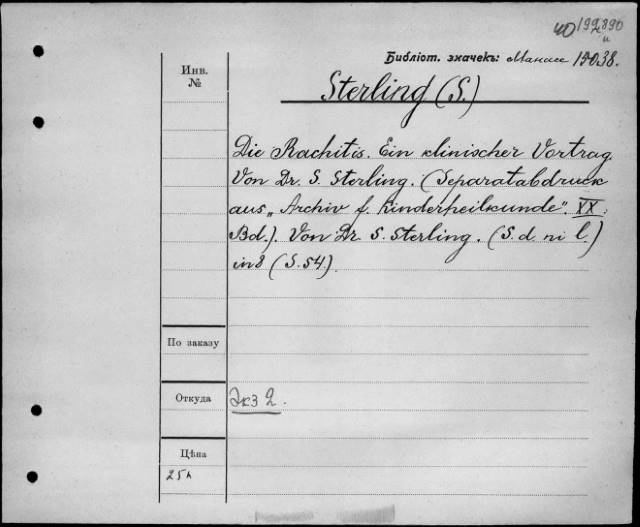 40 199890
и
Библіот. значекъ: Манасс 15038.
Инв.
№
Sterling (S.)
Die Rachitis. Ein klinischer Vortrag.
Von Dr. S. Sterling. (Separatabdruck
aus „Archiv f. Kinderheilkunde". XX.
Bd.). Von Dr. S. Sterling. (S. d. ni l.)
in 8 (S. 54.).
По заказу
Откуда
Экз 2.
Цѣна
25